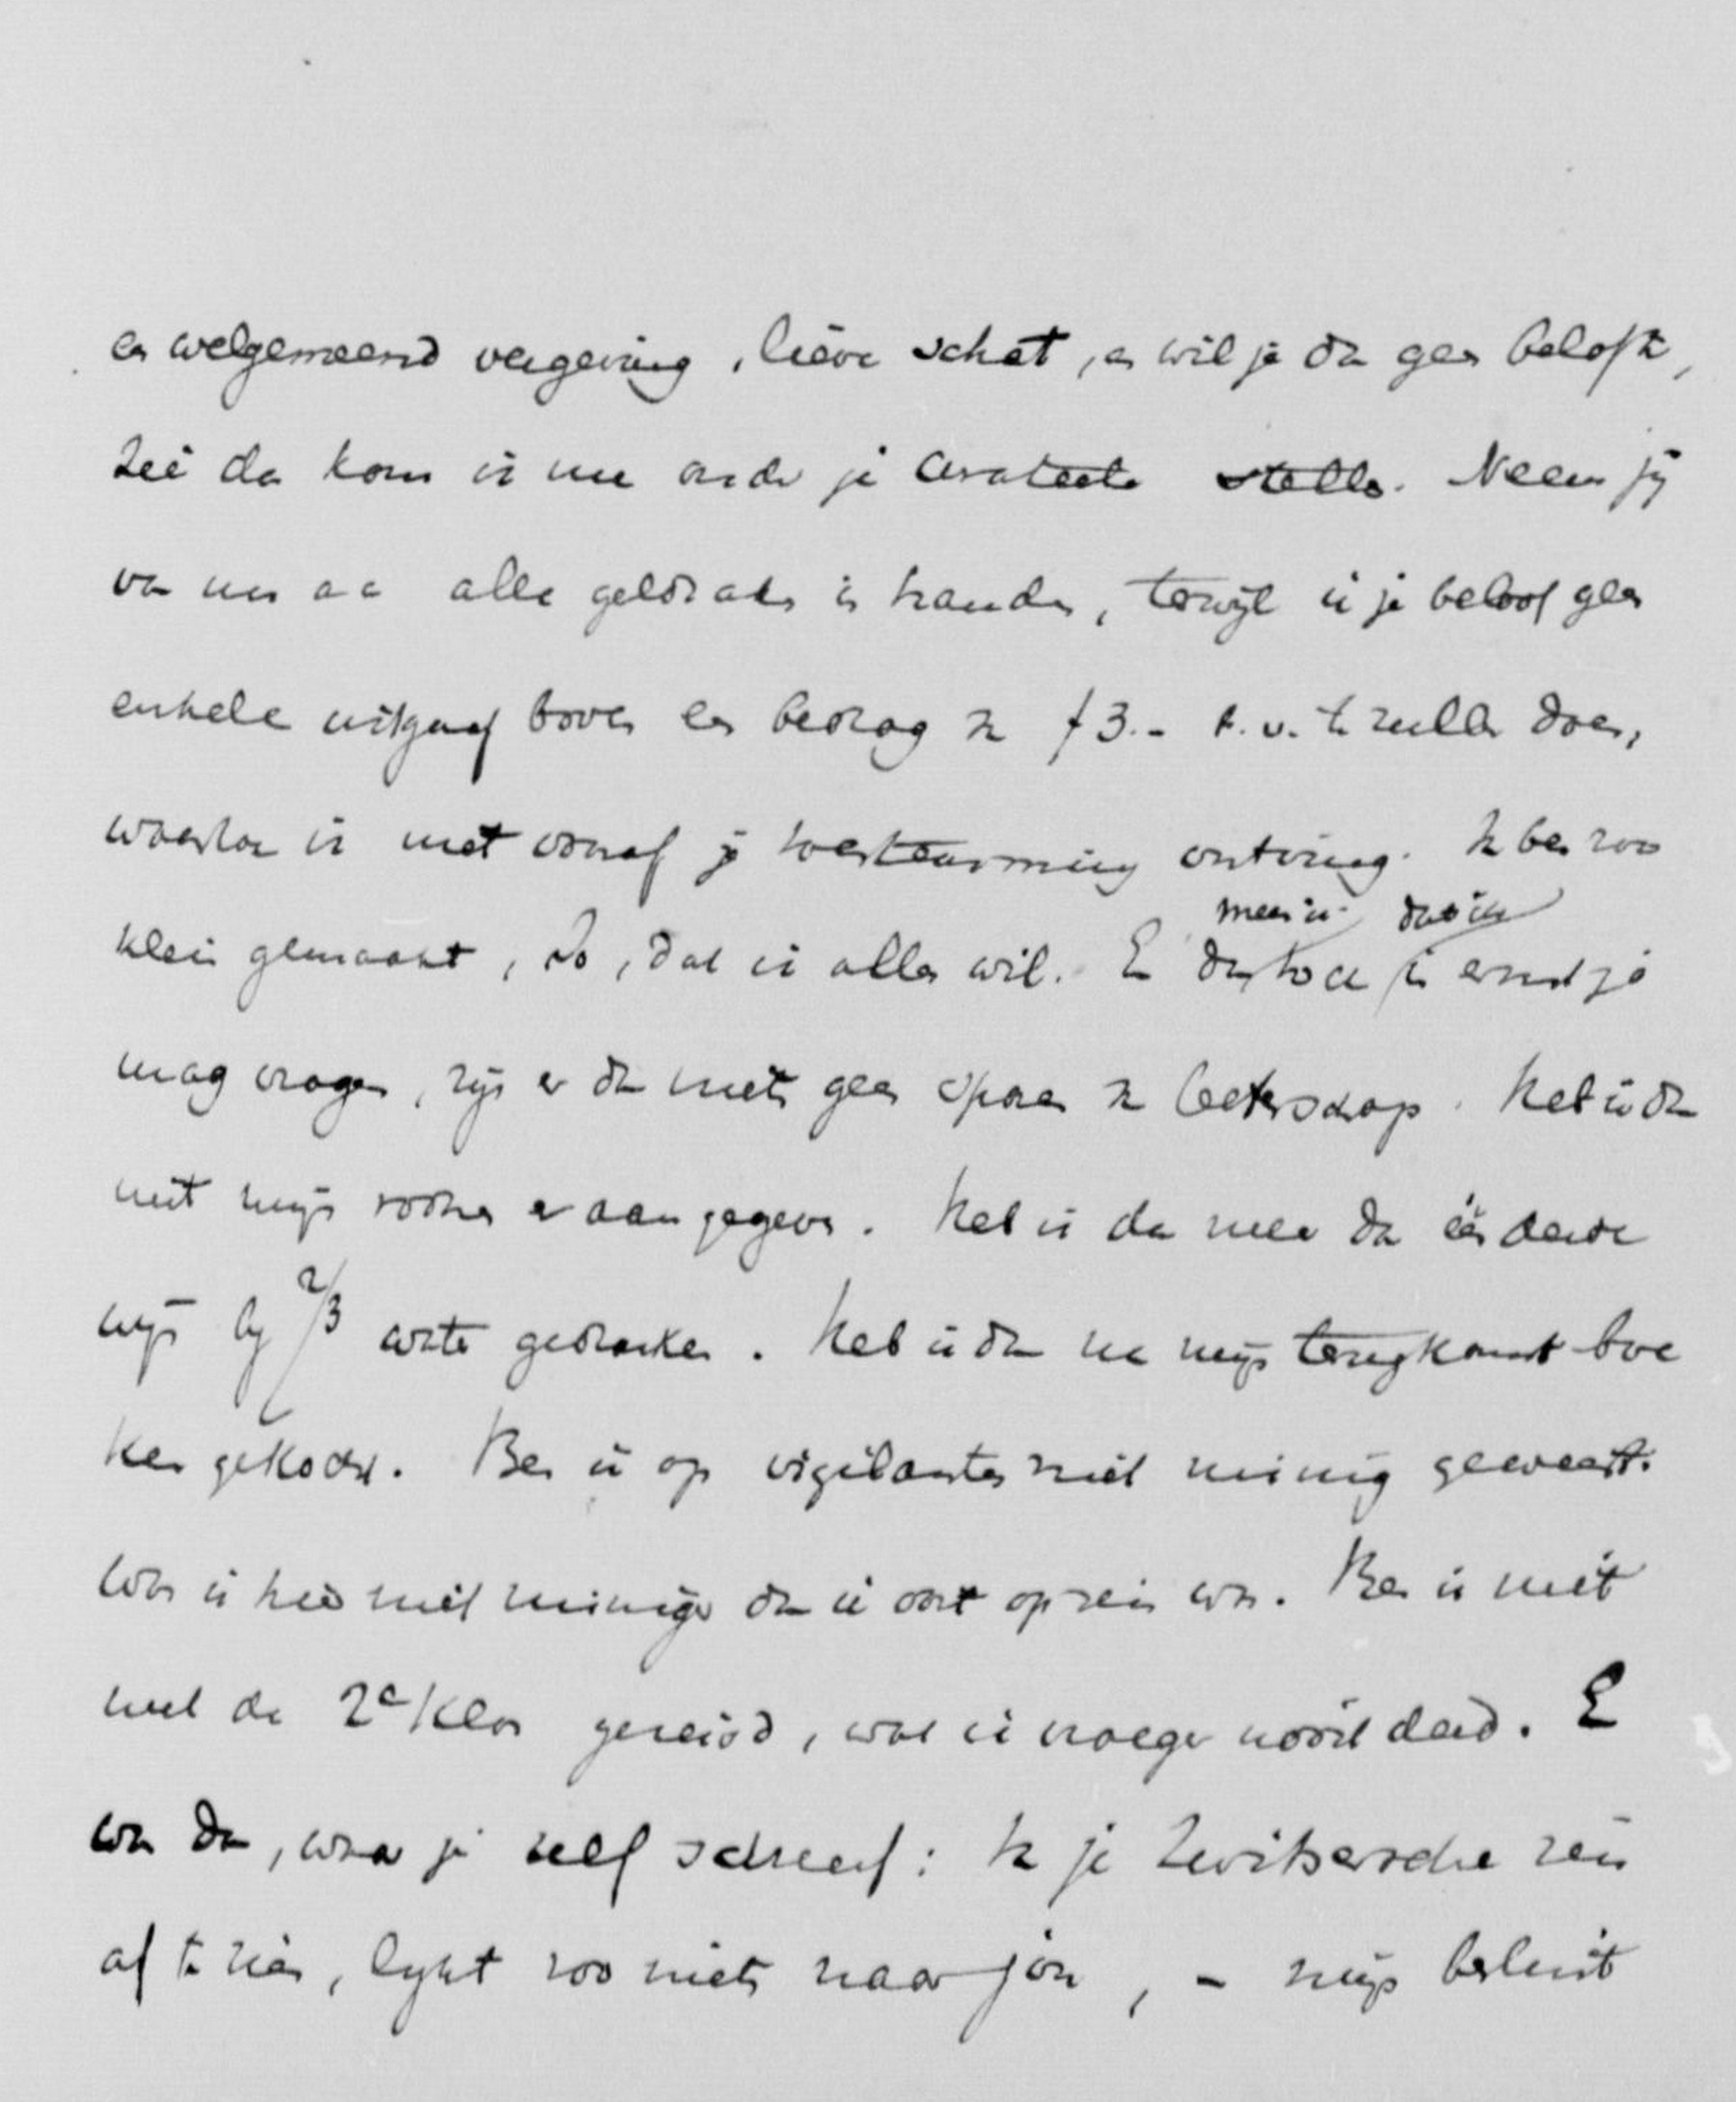 en welgemeend vergeving, lieve schat, en wil je dan geen belofte,
zie dan kom ik me onder je curateele stellen. Neem jij
van nu aan alle geldzaken in handen, terwijl ik je beloof geen
enkele uitgaaf boven een bedrag van f 3.- t. v. te zullen doen,
waarvan ik niet vooraf je toestemming ontving. Ik ben zoo
klein gemaakt, Jo, dat ik alles wil. En
meen ik dat ik
mag vragen, zijn er dan niets geen sporen van beterschap. Heb ik dan
niet mijn rooken er aan gegeven. Heb ik daarmee dan één derde
wijn bij 2/3 water gedronken. Heb ik dan na mijn terugkomst boe
ken gekocht. Ben ik op vigilantes niet zuinig geweest.
Was ik hier niet zuiniger dan ik ooit op reis was. Ben ik niet
met de 2e Klas gereisd, wat ik vroeger nooit deed. En
wat dan, waar je zelf schreef: van je Zwitsersche reis
af te zien, lijkt zoo niets naar jou, - mijn besluit